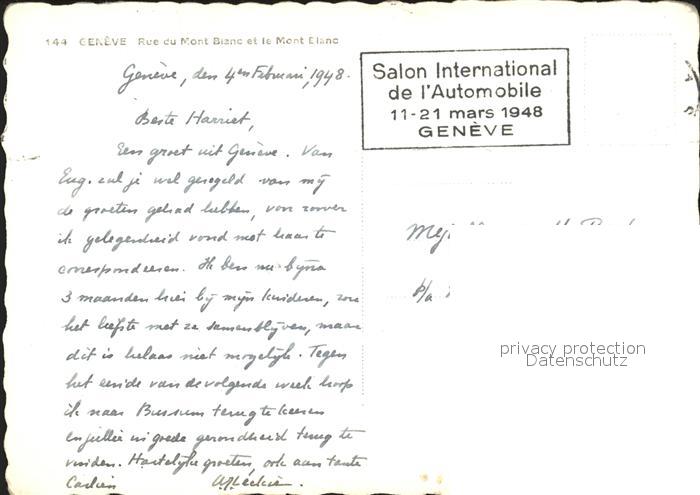 144 GENÈVE Rue du Mont Blanc et le Mont Blanc
Genève, den 4en Februari, 1948.
Salon International
de l'Automobile
11-21 mars 1948
GENÈVE
Beste Harriet,
Een groet uit Genève. Van
Eug. zal je wel geregeld van mij
de groeten gehad hebben, voor zoover
ik gelegenheid vond met haar te
correspondeeren. Ik ben nu bijna
3 maanden hier bij mijn kinderen, zou
het liefste met ze samenblijven, maar
dit is helaas niet mogelijk. Tegen
het einde van de volgende week hoop
ik naar Bussum terug te keeren
en jullie in goede gezondheid terug te
vinden. Hartelijke groeten, ook aan tante
Mej
p/a
privacy protection
Datenschutz